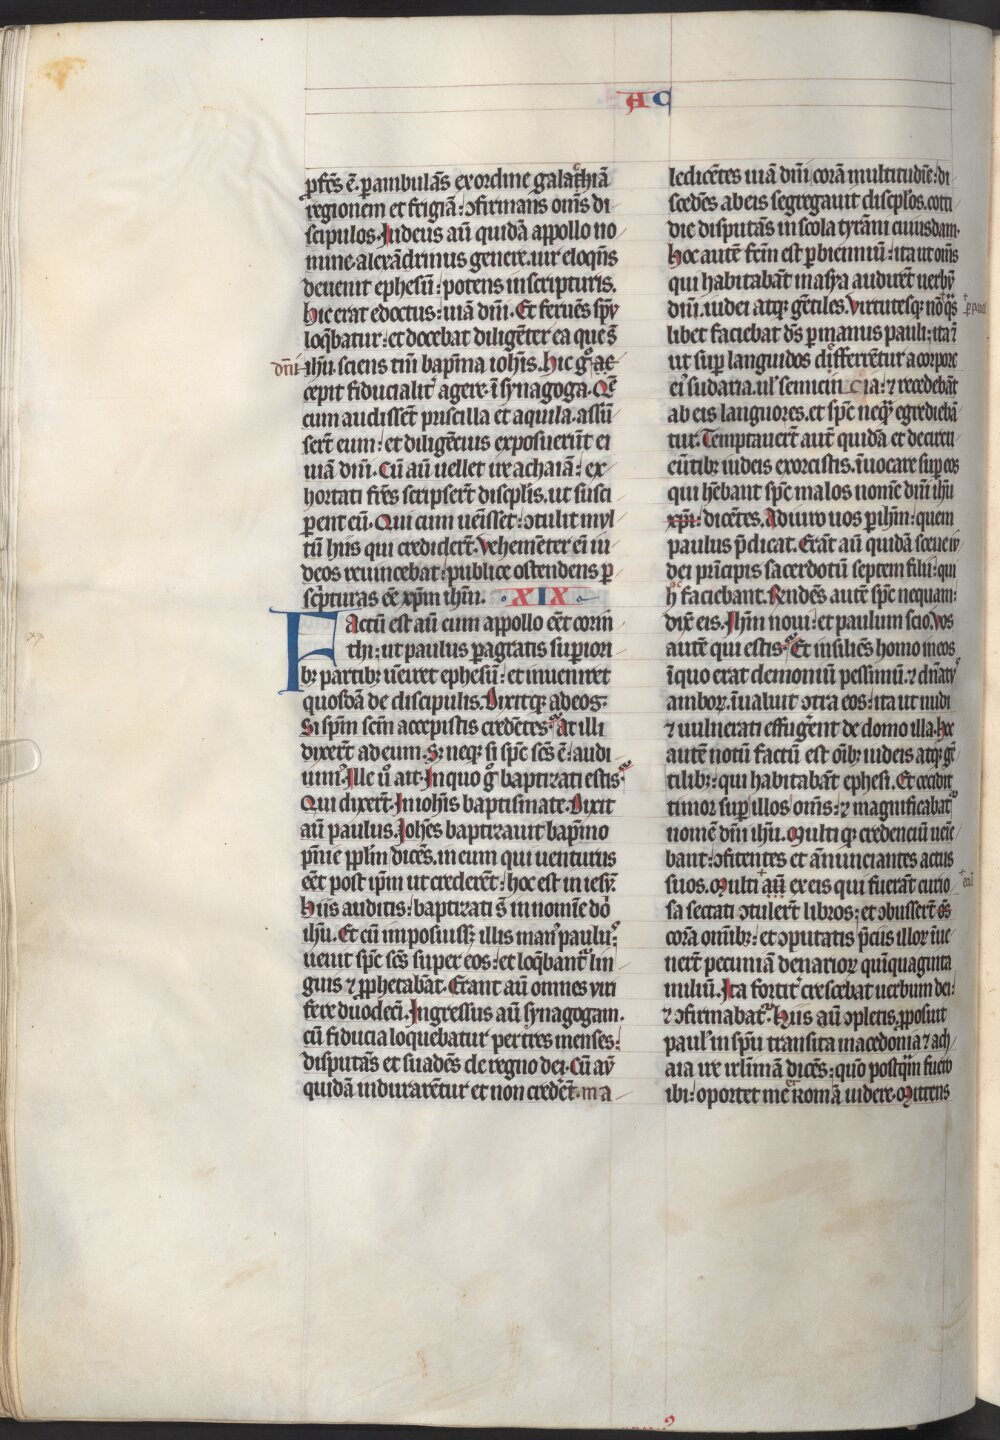 AC
ꝓfc̄s ē. ꝑambulās ex ordine galathiā
regionem et frigiā: ↄfirmans om̄s di
scipulos. Judeus aū quidā appollo no
mine. alexādrinus genere. uir eloqn̄s
deuenit ephesū: potens in scripturis.
hic erat edoctus: uiā dn̄i. Et feruēs sp̄u
loq̄batur: et docebat diligēter ea que s̄t
dn̄i ihū. sciens tm̄ bapm̄a ioh̄is. hic gͦ ac
cepit fiducialit̄ agere. ī synagoga. Qē
cum audissēt priscilla et aquila. assū
sert̄ eum: et diligēcius exposuerūt ei
uiā dn̄i. Cū aū uellet ire achaiā: ex
hortati fr̄es scripsert̄ discip̄lis. ut susci
perent eū. Qui cum uēisset: ↄtulit mul
tū hiis qui credidert̄. Vehemēter ei iu
deos reuincebat: publice ostendens ꝑ
sc͛pturas eē xp̄m ih̄m. XIX
Factū est aū cum appollo eēt corin
thi: ut paulus ꝑagratis supiori
bꝫ partibꝫ uēiret ephesū: et inueniret
quosdā de discipulis. Dixitqꝫ ad eos.
Si sp̄m sc̄m accepistis credētes. At illi
dixert̄ ad eum. Sꝫ neqꝫ si sp̄c sc̄s ē: audi
uimꝰ. Ille u͛o ait. In quo gͦ baptizati estis.
Qui dixert̄. In ioh̄is baptismate. Dixit
aū paulus. Joh̄es baptizauit bapm̄o
pn̄ie pp̄lm dicēs. in eum qui uenturus
eēt post ip̄m ut crederēt: hoc est in iesū.
Hiis auditis: baptizati s̄t in nomīe dn̄i
ihū. Et cū imposuisꝫ illis manꝰ pauluꝰ:
uenit sp̄c sc̄s super eos: et loq̄bantʳ lin
guis ⁊ ꝓphetabāt. Erant aū omnes uiri
fere duodecī. Ingressus aū synagogam.
cū fiducia loquebatur per tres menses:
disputās et suadēs de regno dei. Cū aū
quidā indurarētur et non credēt. ma
ledicētes uiā dn̄i corā multitudīe: di
scedēs ab eis segregauit discip̄los. cotti
die disputās in scola tyrāni cuiusdam.
hoc autē fc̄m est ꝑ bienniū: ita ut om̄s
qui habitabāt in asya audirēt uerbū
dn̄i. iudei atqꝫ gētiles. Virtutesqꝫ nō q͛s
libet faciebat ds̄ ꝑ manus pauli: ita ⁊
ut sup languidos differrētur a corpore
eiꝰ sudaria. ul̄ semicincia: ⁊ recedebāt
ab eis languores. et sp̄c neqͣ egrediebā
tur. Temptauert̄ aut̄ quidā et decircu
eūtibꝫ iudeis exorcistis. īuocare sup eos
qui hēbant sp̄c malos nomē dn̄i ihū
xp̄i: dicētes. Adiuro uos ꝑ ih̄m: quem
paulus p̄dicat. Erāt aū quidā sceue iu
dei pr̄incipis sacerdotū septem filii: qui
hͦ faciebant. Rn̄dēs autē sp̄c nequam:
dix̄ eis. Jh̄m noui: et paulum scio. Vos
autē qui estis. Et insiliēs homo in eos
ī quo erat demoniū pessimū. ⁊ dn̄atꝰ
amboꝝ. īualuit ↄtra eos: ita ut nudi
⁊ uulnerati effugēnt de domo illa. hoc
autē notū factū est om̄ibꝫ iudeis atqꝫ gē
tilibꝫ: qui habitabāt ephesi. Et cecidit
timor sup illos om̄s: ⁊ magnificabatʳ
nomē dn̄i ihū. Multi qꝫ credenciū ueīe
bant: ↄfitentes et ānunciantes actus
suos. Multi aū ex eis qui fuerāt curio
sa sectati ↄtulert̄ libros: et ↄbussert̄ om̄s
corā om̄ibꝫ: et ↄputatis p̄ciis illoꝝ īue
nert̄ pecuniā denarioꝝ quīquaginta
miliū. Ita fortit̄ crescebat uerbum dei:
⁊ ↄfirmabatʳ. Hiis aū ↄpletis. ꝓposuit
paulꝰ in sp̄u transita macedonia ⁊ ach
aia ire irl̄imā dicēs: qm̄o postq̄m fuero
ibi: oportet me ⁊ Romā uidere. Mittens